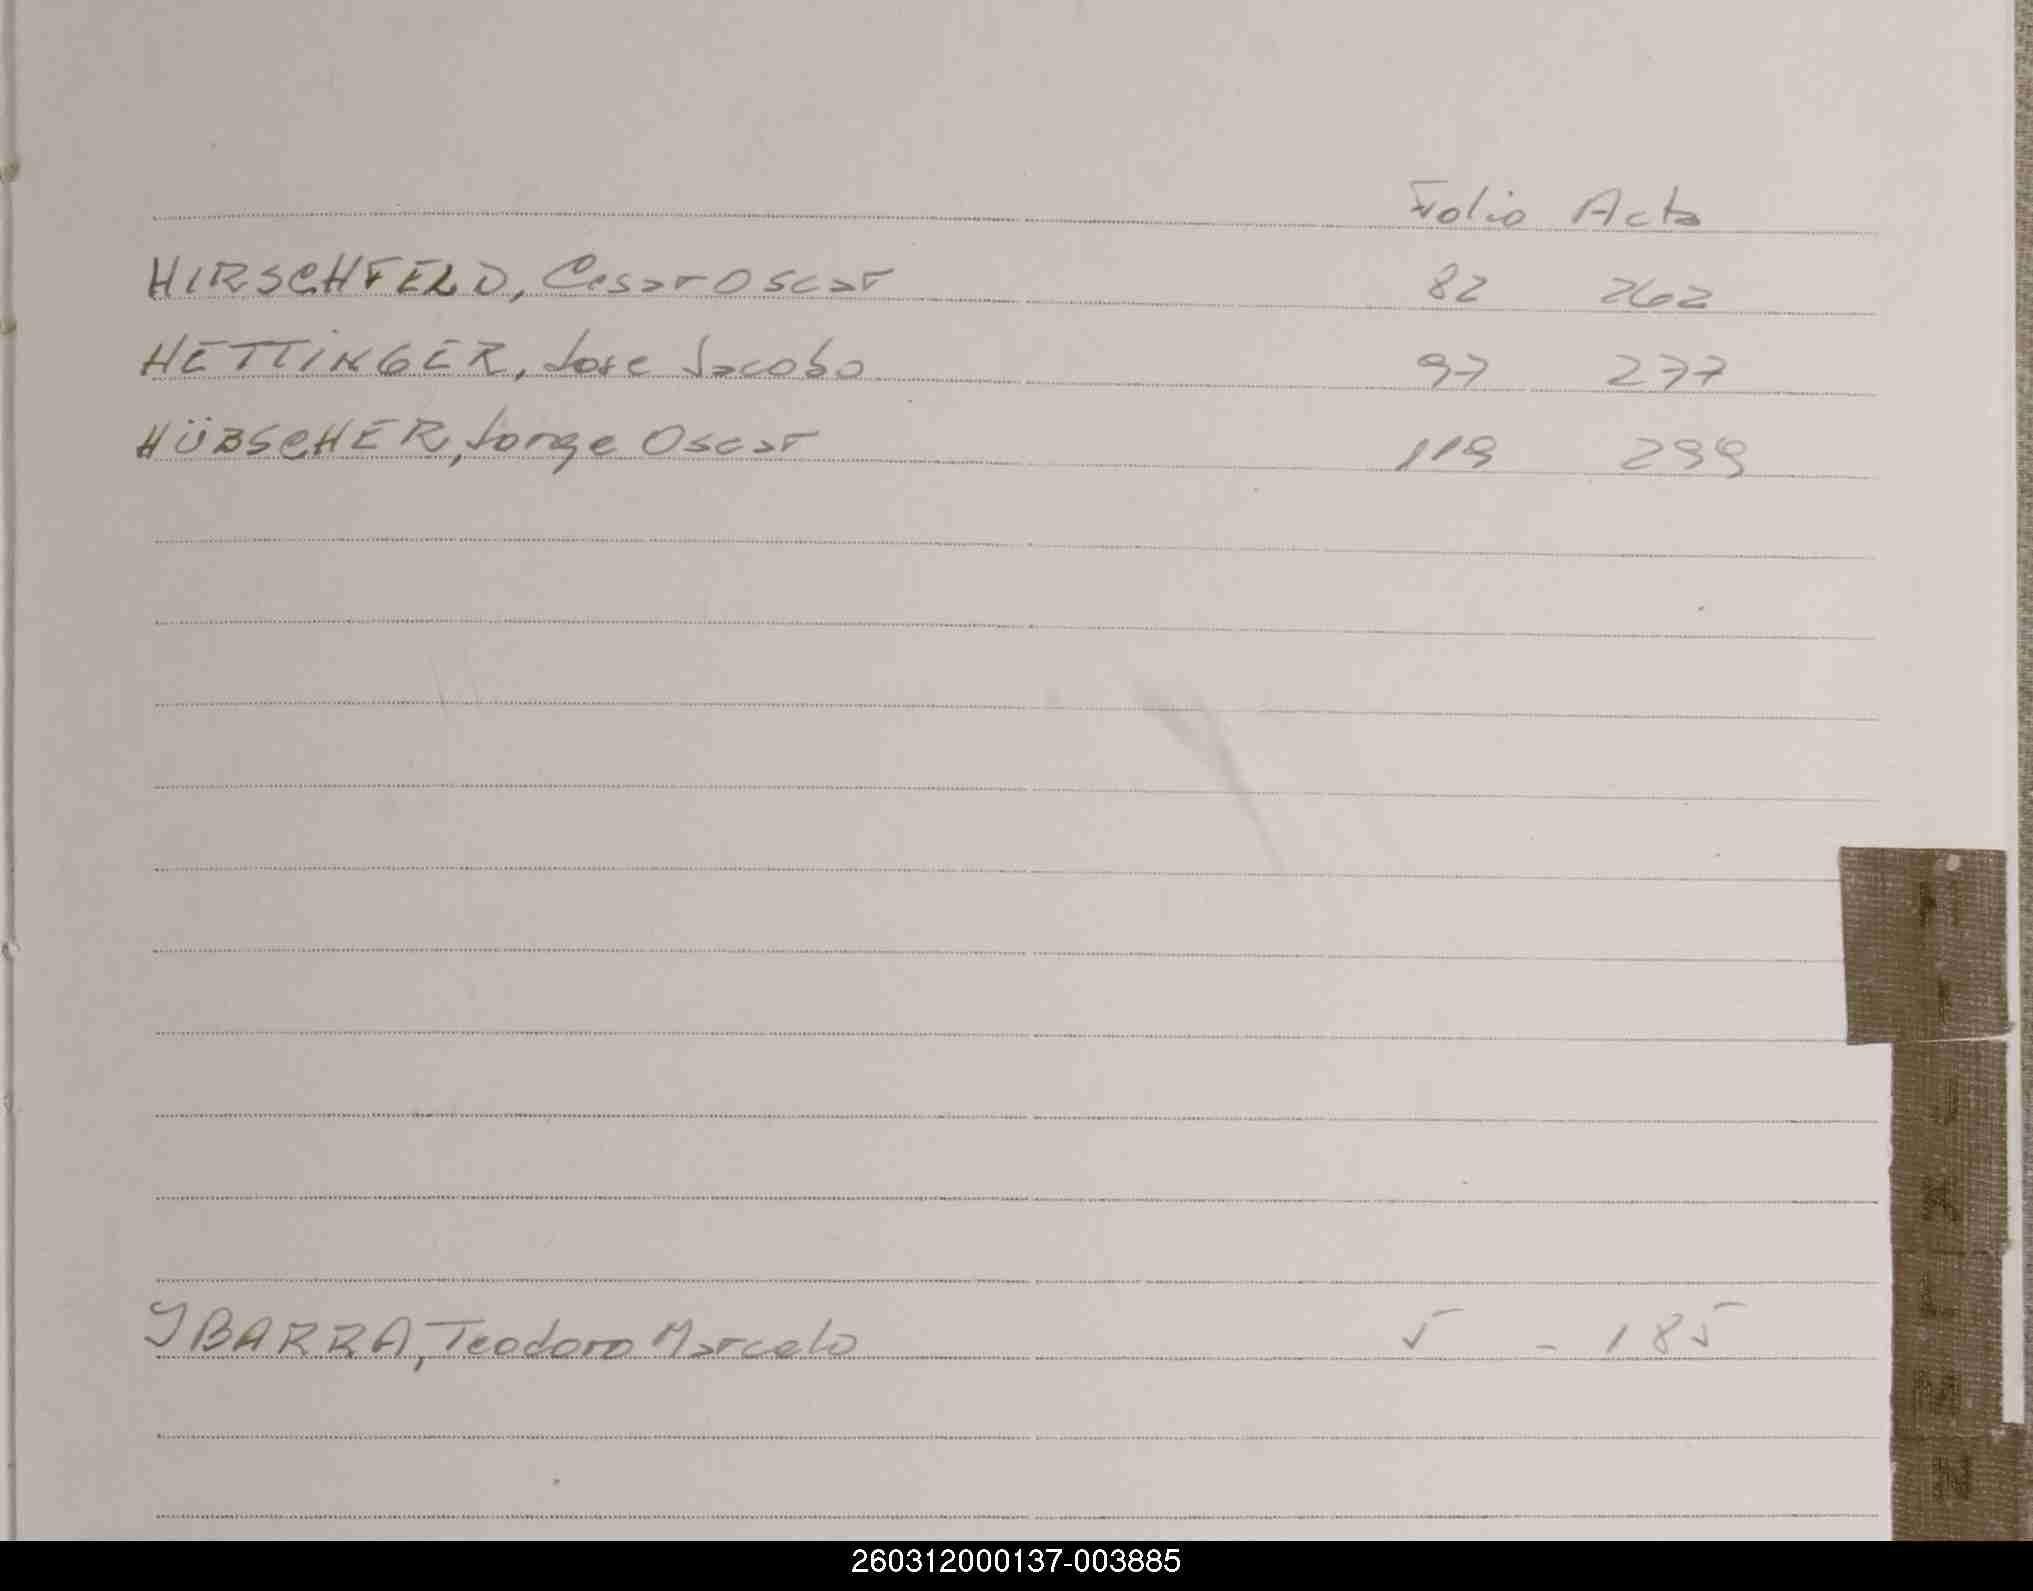 Folio Acta
HIRSCHFELD, Cesar Oscar 82 262
HETTINGER, Jose Jacobo 97 277
HÜBSCHER, Jorge Oscar 119 299
YBARRA, Teodoro Marcelo 5 - 185
260312000137-003885